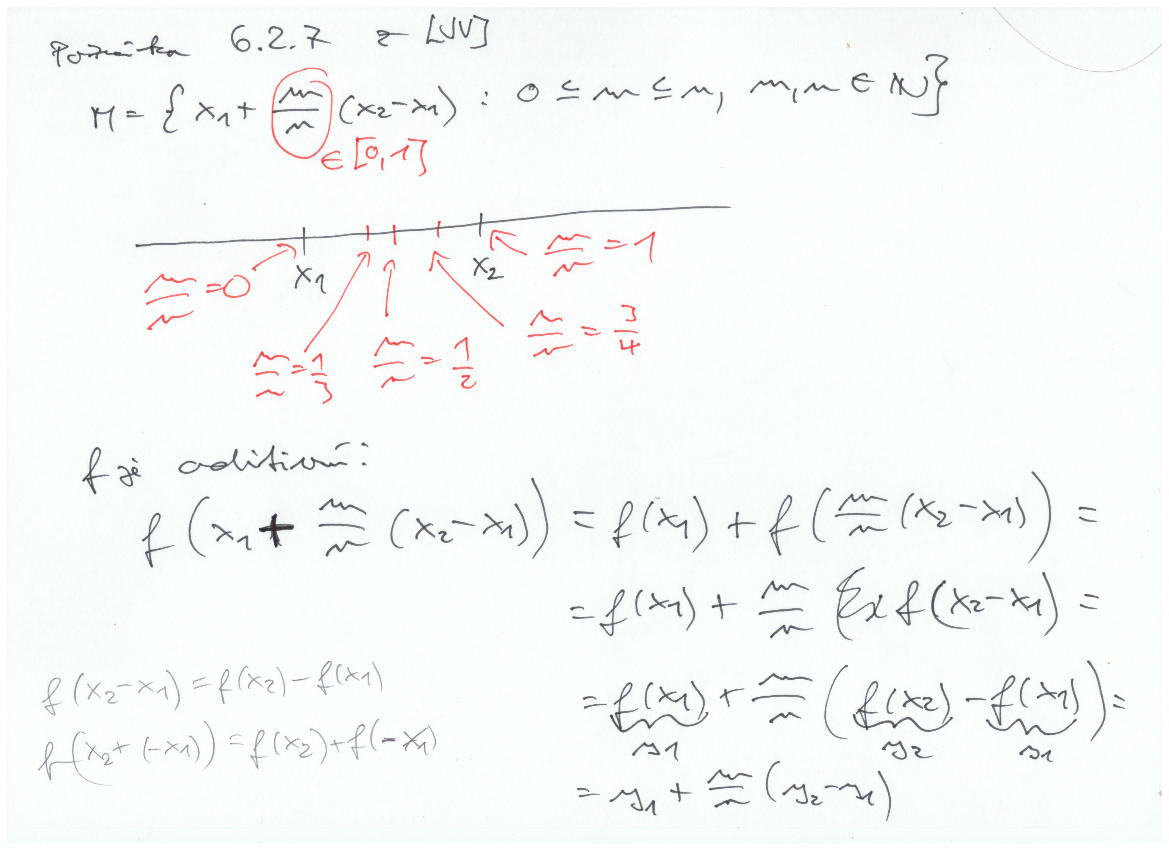 Poznámka 6.2.7 z [JV]
M = { x₁ + m/n (x₂-x₁) : 0 ≤ m ≤ n, m,n ∈ ℕ }
∈ [0,1]
x₁ x₂
m/n = 0
m/n = 1
m/n = 1/3
m/n = 1/2
m/n = 3/4
f je aditivní:
f (x₁ + m/n (x₂-x₁)) = f(x₁) + f (m/n (x₂-x₁)) =
= f(x₁) + m/n f(x₂-x₁) =
= f(x₁) + m/n (f(x₂) - f(x₁)) =
y₁ y₂ y₁
= y₁ + m/n (y₂-y₁)
f (x₂-x₁) = f(x₂) - f(x₁)
f (x₂+ (-x₁)) = f(x₂) + f(-x₁)